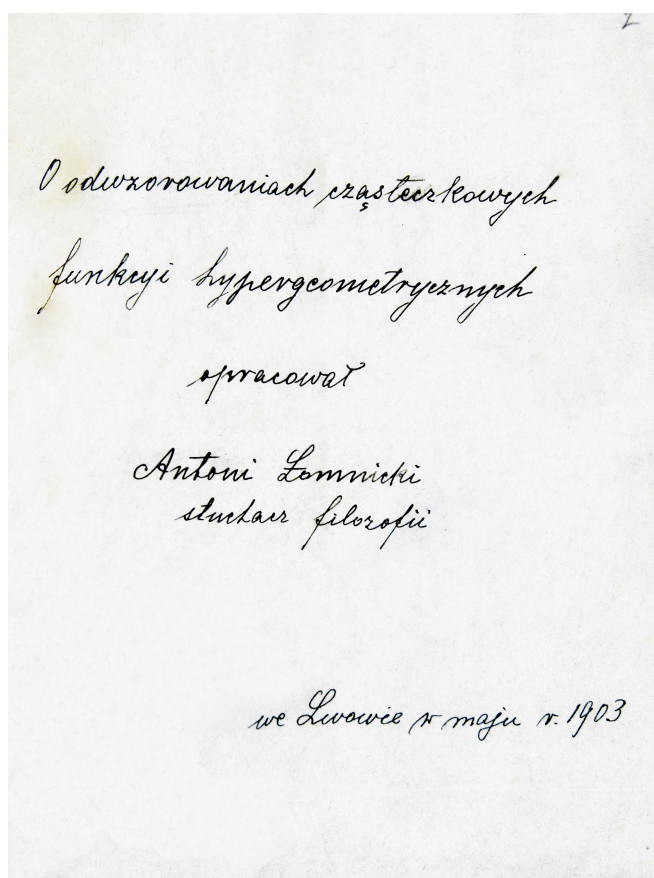 O odwzorowaniach cząsteczkowych
funkcyi hypergeometrycznych
opracował
Antoni Łomnicki
słuchacz filozofii
we Lwowie w maju r. 1903